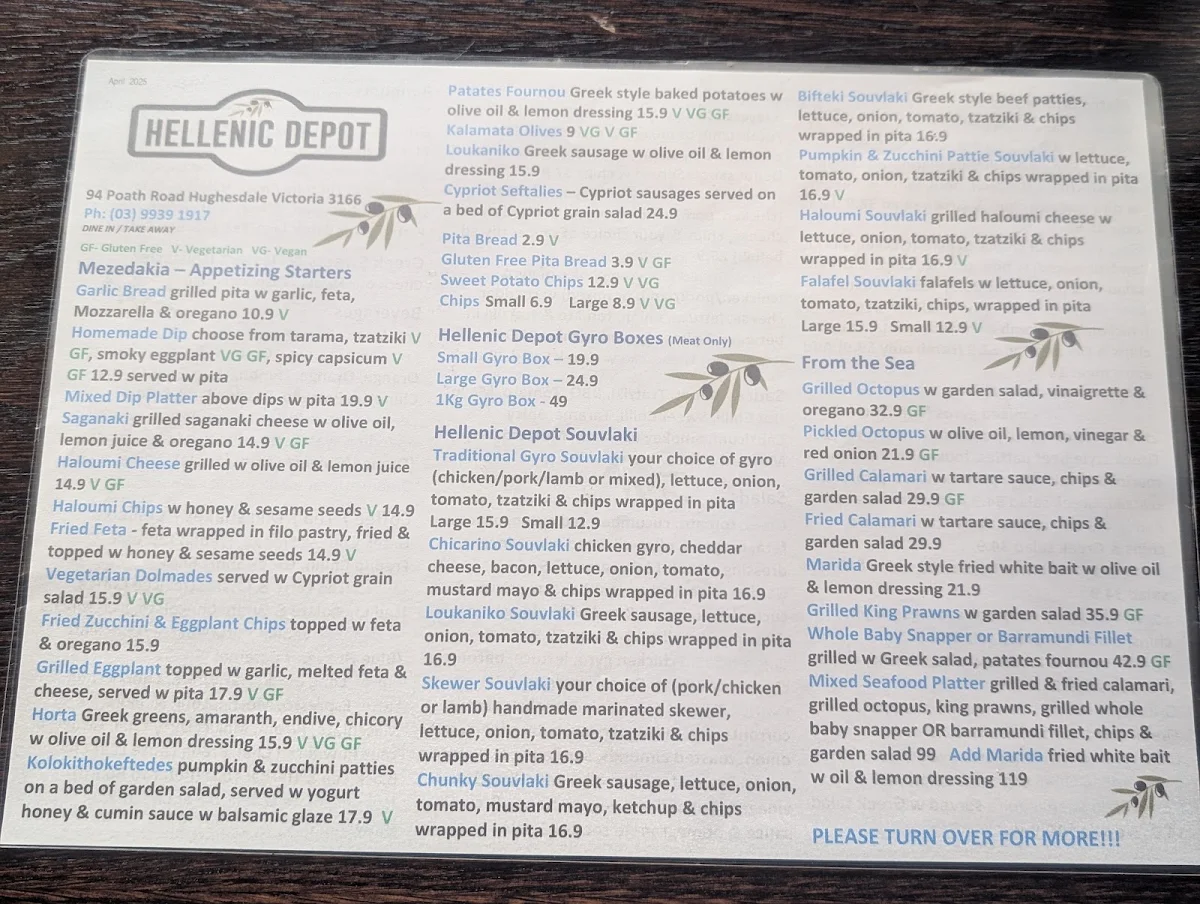 April 2025
HELLENIC DEPOT
94 Poath Road Hughesdale Victoria 3166
Ph: (03) 9939 1917
DINE IN / TAKE AWAY
GF- Gluten Free V- Vegetarian VG- Vegan
Mezedakia – Appetizing Starters
Garlic Bread grilled pita w garlic, feta,
Mozzarella & oregano 10.9 V
Homemade Dip choose from tarama, tzatziki V
GF, smoky eggplant VG GF, spicy capsicum V
GF 12.9 served w pita
Mixed Dip Platter above dips w pita 19.9 V
Saganaki grilled saganaki cheese w olive oil,
lemon juice & oregano 14.9 V GF
Haloumi Cheese grilled w olive oil & lemon juice
14.9 V GF
Haloumi Chips w honey & sesame seeds V 14.9
Fried Feta - feta wrapped in filo pastry, fried &
topped w honey & sesame seeds 14.9 V
Vegetarian Dolmades served w Cypriot grain
salad 15.9 V VG
Fried Zucchini & Eggplant Chips topped w feta
& oregano 15.9
Grilled Eggplant topped w garlic, melted feta &
cheese, served w pita 17.9 V GF
Horta Greek greens, amaranth, endive, chicory
w olive oil & lemon dressing 15.9 V VG GF
Kolokithokeftedes pumpkin & zucchini patties
on a bed of garden salad, served w yogurt
honey & cumin sauce w balsamic glaze 17.9 V
Patates Fournou Greek style baked potatoes w
olive oil & lemon dressing 15.9 V VG GF
Kalamata Olives 9 VG V GF
Loukaniko Greek sausage w olive oil & lemon
dressing 15.9
Cypriot Seftalies – Cypriot sausages served on
a bed of Cypriot grain salad 24.9
Pita Bread 2.9 V
Gluten Free Pita Bread 3.9 V GF
Sweet Potato Chips 12.9 V VG
Chips Small 6.9 Large 8.9 V VG
Hellenic Depot Gyro Boxes (Meat Only)
Small Gyro Box – 19.9
Large Gyro Box – 24.9
1Kg Gyro Box - 49
Hellenic Depot Souvlaki
Traditional Gyro Souvlaki your choice of gyro
(chicken/pork/lamb or mixed), lettuce, onion,
tomato, tzatziki & chips wrapped in pita
Large 15.9 Small 12.9
Chicarino Souvlaki chicken gyro, cheddar
cheese, bacon, lettuce, onion, tomato,
mustard mayo & chips wrapped in pita 16.9
Loukaniko Souvlaki Greek sausage, lettuce,
onion, tomato, tzatziki & chips wrapped in pita
16.9
Skewer Souvlaki your choice of (pork/chicken
or lamb) handmade marinated skewer,
lettuce, onion, tomato, tzatziki & chips
wrapped in pita 16.9
Chunky Souvlaki Greek sausage, lettuce, onion,
tomato, mustard mayo, ketchup & chips
wrapped in pita 16.9
Bifteki Souvlaki Greek style beef patties,
lettuce, onion, tomato, tzatziki & chips
wrapped in pita 16.9
Pumpkin & Zucchini Pattie Souvlaki w lettuce,
tomato, onion, tzatziki & chips wrapped in pita
16.9 V
Haloumi Souvlaki grilled haloumi cheese w
lettuce, onion, tomato, tzatziki & chips
wrapped in pita 16.9 V
Falafel Souvlaki falafels w lettuce, onion,
tomato, tzatziki, chips, wrapped in pita
Large 15.9 Small 12.9 V
From the Sea
Grilled Octopus w garden salad, vinaigrette &
oregano 32.9 GF
Pickled Octopus w olive oil, lemon, vinegar &
red onion 21.9 GF
Grilled Calamari w tartare sauce, chips &
garden salad 29.9 GF
Fried Calamari w tartare sauce, chips &
garden salad 29.9
Marida Greek style fried white bait w olive oil
& lemon dressing 21.9
Grilled King Prawns w garden salad 35.9 GF
Whole Baby Snapper or Barramundi Fillet
grilled w Greek salad, patates fournou 42.9 GF
Mixed Seafood Platter grilled & fried calamari,
grilled octopus, king prawns, grilled whole
baby snapper OR barramundi fillet, chips &
garden salad 99 Add Marida fried white bait
w oil & lemon dressing 119
PLEASE TURN OVER FOR MORE!!!